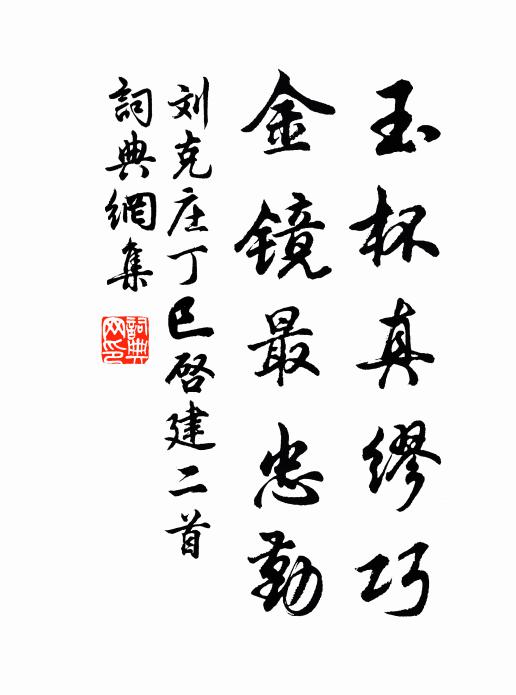 玉杯真缪巧
金镜最忠勤
刘克庄丁巳啓建二首
詞典網集
詞典网印